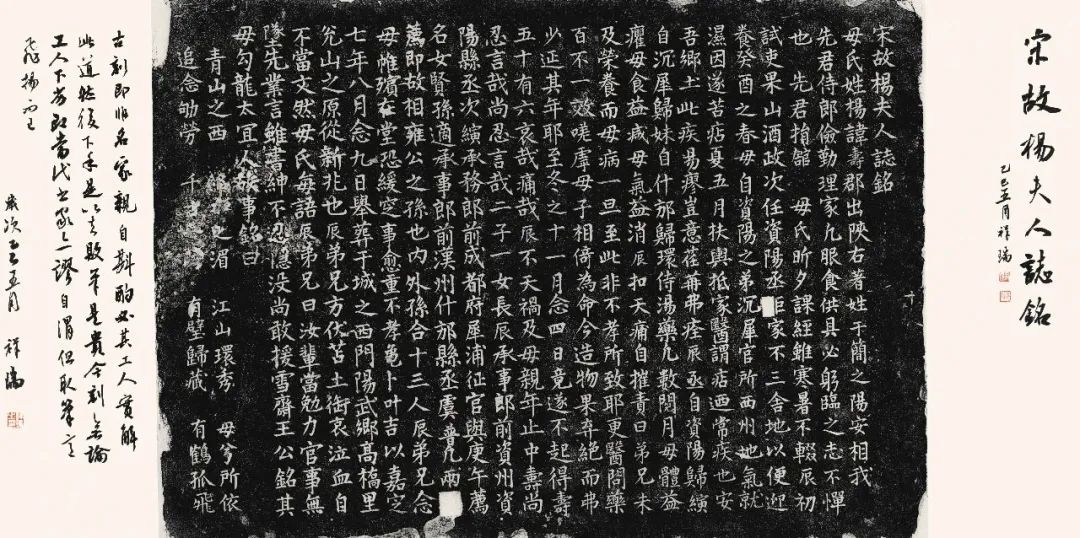 宋故楊夫人誌銘
乙巳五月祥瑞
宋故楊夫人誌銘
母氏姓楊諱壽郡出陝右著姓于簡之陽安相我
先君侍郎儉勤理家凡服食供具必躬臨之志不憚
也 先君捐館 母氏昕夕課經雖寒暑不輟辰初
試吏果山酒政次任資陽丞距家不三舍地以便迎
養癸酉之春母自資陽之弟沉犀官所西州地氣就
濕因遂苦痁夏五月扶輿抵家醫謂痁迺常疾也安
吾鄉土此疾易瘳豈意荏苒弗痊辰丞自資陽歸縯
自沉犀歸妹自什邡歸環侍湯藥凡數閱月母體益
癯母食益減母氣益消辰扣天痛自摧責曰弟兄未
及榮養而母病一旦至此非不孝所致耶更醫問藥
百不一效嗟虖母子相倚為命今造物果弃絕而弗
少正其年耶至冬之十一月念四日竟遂不起得壽
五十有六哀哉痛哉辰不天禍及母親年止中壽尚
忍言哉尚忍言哉二子一女長辰承事郎前資州資
陽縣丞次縯承務郎前成都府犀浦征官與庚午薦
名女賢孫適承事郎前漢州什邡縣丞虞 曾凡兩
薦即故相雍公之孫也內外孫合十三人辰弟兄念
母帷殯在堂恐緩空事愈重不孝黽卜叶吉以嘉定
七年八月念九日舉葬于城之西門陽武鄉高橋里
兊山之原從新兆也辰弟兄方伏苫土銜哀泣血自
不當文然母氏每語辰弟兄曰汝輩當勉力官事無
墜先業言雖書紳不忍隱沒尚敢援雪齋王公銘其
母勾龍太宜人族事銘曰
青山之西 之湄 江山環秀 母兮所依
追念劬勞 千 有壁歸藏 有鶴孤飛
古刻即非名家親自斟酌必其工人實解
此道然後下手是以去敗筆是貴今刻無論
工人下劣即當代書家亦謬自謂但取筆意
飛揚而已
歲次乙巳五月 祥瑞